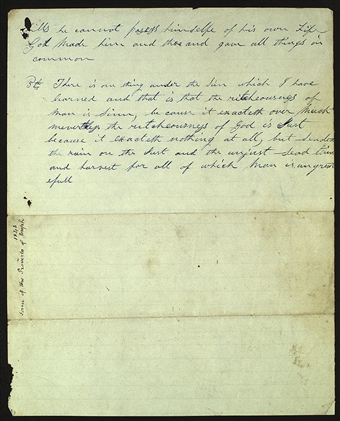 he cannot posess himselfe of his own Life
God made him and thee and gave all things in
common
There is one thing under the Sun which I have
learned and that is that the ritcheousness of
man is sinn, be caus it exacteth over much
the ritcheousness of God is Just
because it exacteth nothing at all, but sendeth
the rain on the Just and the unjust Sead time
and harvest for all of which man is ungreat
efull
Some of the Proverbs of Joseph